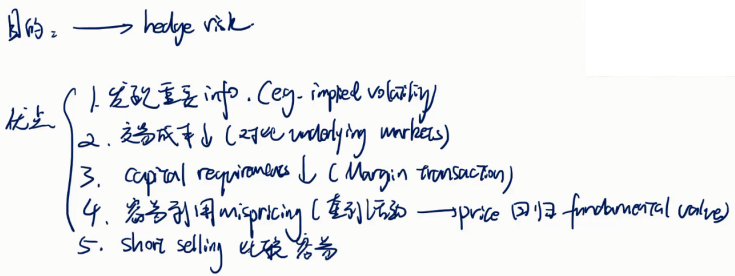 目的: → hedge risk
优点
1. 发现重要info. (eg. implied volatility)
2. 交易成本↓ (对比 underlying markets)
3. capital requirements ↓ (Margin transaction)
4. 容易利用mispricing (套利活动 → price 回归 fundamental value)
5. short selling 比较容易